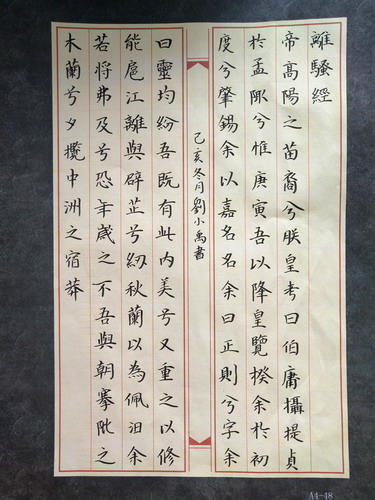 離騷經
帝高陽之苗裔兮朕皇考曰伯庸攝提貞
於孟陬兮惟庚寅吾以降皇覽揆余於初
度兮肇錫余以嘉名名余曰正則兮字余
己亥冬月劉小禹書
曰靈均紛吾既有此內美兮又重之以修
能扈江離與辟芷兮紉秋蘭以為佩汩余
若將弗及兮恐年歲之不吾與朝搴阰之
木蘭兮夕攬中洲之宿莽
A4-48